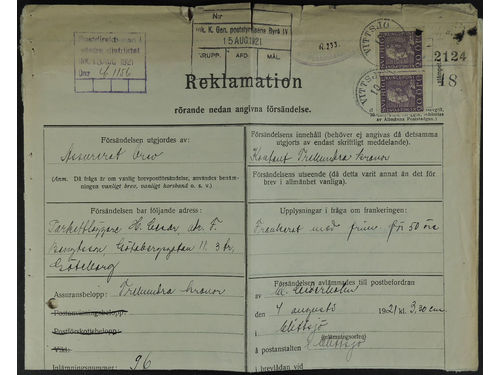 Postdirektionen i
södra distriktet
INK. AUG. 1921
Dnr 4/1156
Nr
Ink. K. Gen. poststyrelsens Byrå IV
15 AUG 1921
GRUPP. AFD. MÅL.
R.233.
VITTSJÖ
VITTSJÖ
2124
18
Reklamation
rörande nedan angivna försändelse.
av Allmänna Poststadgan.)
Försändelsen utgjordes av:
Assurerat brev
(Anm. Då fråga är om vanlig brevpostförsändelse, användes benämningen
vanligt brev, vanligt korsband o. s. v.)
Försändelsen bar följande adress:
Göteborg
Assuransbelopp: Trehundra kronor
Postanvisningsbelopp:
Postförskottsbelopp:
Vikt:
Inlämningsnummer: 96
Försändelsens innehåll (behöver ej angivas då detsamma
utgjorts av endast skriftligt meddelande):
Kontant Trehundra kronor
Försändelsens utseende (då detta varit annat än det för
brev i allmänhet vanliga).
Upplysningar i fråga om frankeringen:
Frankerat med frim. för 50 öre
Försändelsen avlämnades till postbefordran
av
den 4 augusti 1921 kl 3,30 em
i Vittsjö
(inlämningsorten)
å postanstalten i Vittsjö
i brevlådan vid